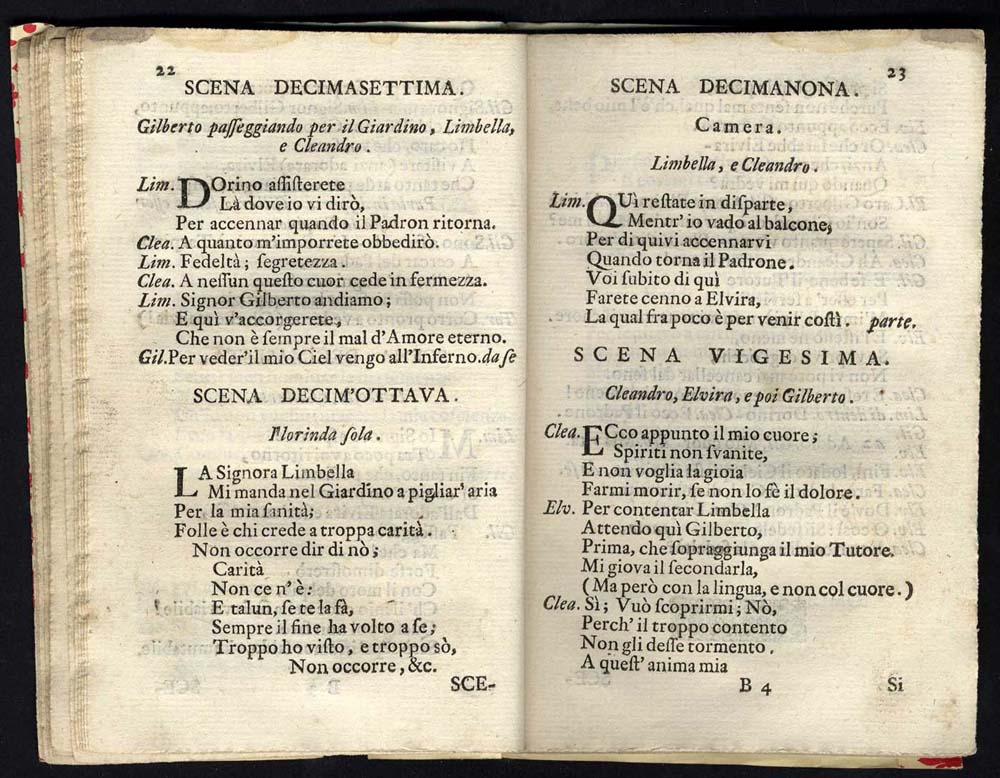 22
SCENA DECIMASETTIMA.
Gilberto paſſeggiando per il Giardino, Limbella,
e Cleandro.
Lim. DOrino aſſiſterete
Là dove io vi dirò,
Per accennar quando il Padron ritorna.
Clea. A quanto m'imporrete obbedirò.
Lim. Fedeltà; ſegretezza.
Clea. A neſſun queſto cuor cede in fermezza.
Lim. Signor Gilberto andiamo;
E quì v'accorgerete,
Che non è ſempre il mal d'Amore eterno.
Gil. Per veder'il mio Ciel vengo all'Inferno. da ſe
SCENA DECIM'OTTAVA.
Florinda ſola.
LA Signora Limbella
Mi manda nel Giardino a pigliar' aria
Per la mia ſanità;
Folle è chi crede a troppa carità.
Non occorre dir di nò;
Carità
Non ce n'è:
E talun, ſe te la fà,
Sempre il fine ha volto a ſe;
Troppo ho viſto, e troppo sò,
Non occorre, &c.
SCE-
23
SCENA DECIMANONA.
Camera.
Limbella, e Cleandro.
Lim. QUì reſtate in diſparte,
Mentr' io vado al balcone,
Per di quivi accennarvi
Quando torna il Padrone.
Voi ſubito di quì
Farete cenno a Elvira,
La qual fra poco è per venir coſtì. parte.
SCENA VIGESIMA.
Cleandro, Elvira, e poi Gilberto.
Clea. ECco appunto il mio cuore;
Spiriti non ſvanite,
E non voglia la gioia
Farmi morir, ſe non lo fè il dolore.
Elv. Per contentar Limbella
Attendo quì Gilberto,
Prima, che ſopraggiunga il mio Tutore.
Mi giova il ſecondarla,
(Ma però con la lingua, e non col cuore.)
Clea. Sì; Vuò ſcoprirmi; Nò,
Perch' il troppo contento
Non gli deſſe tormento.
A queſt' anima mia
B 4
Si